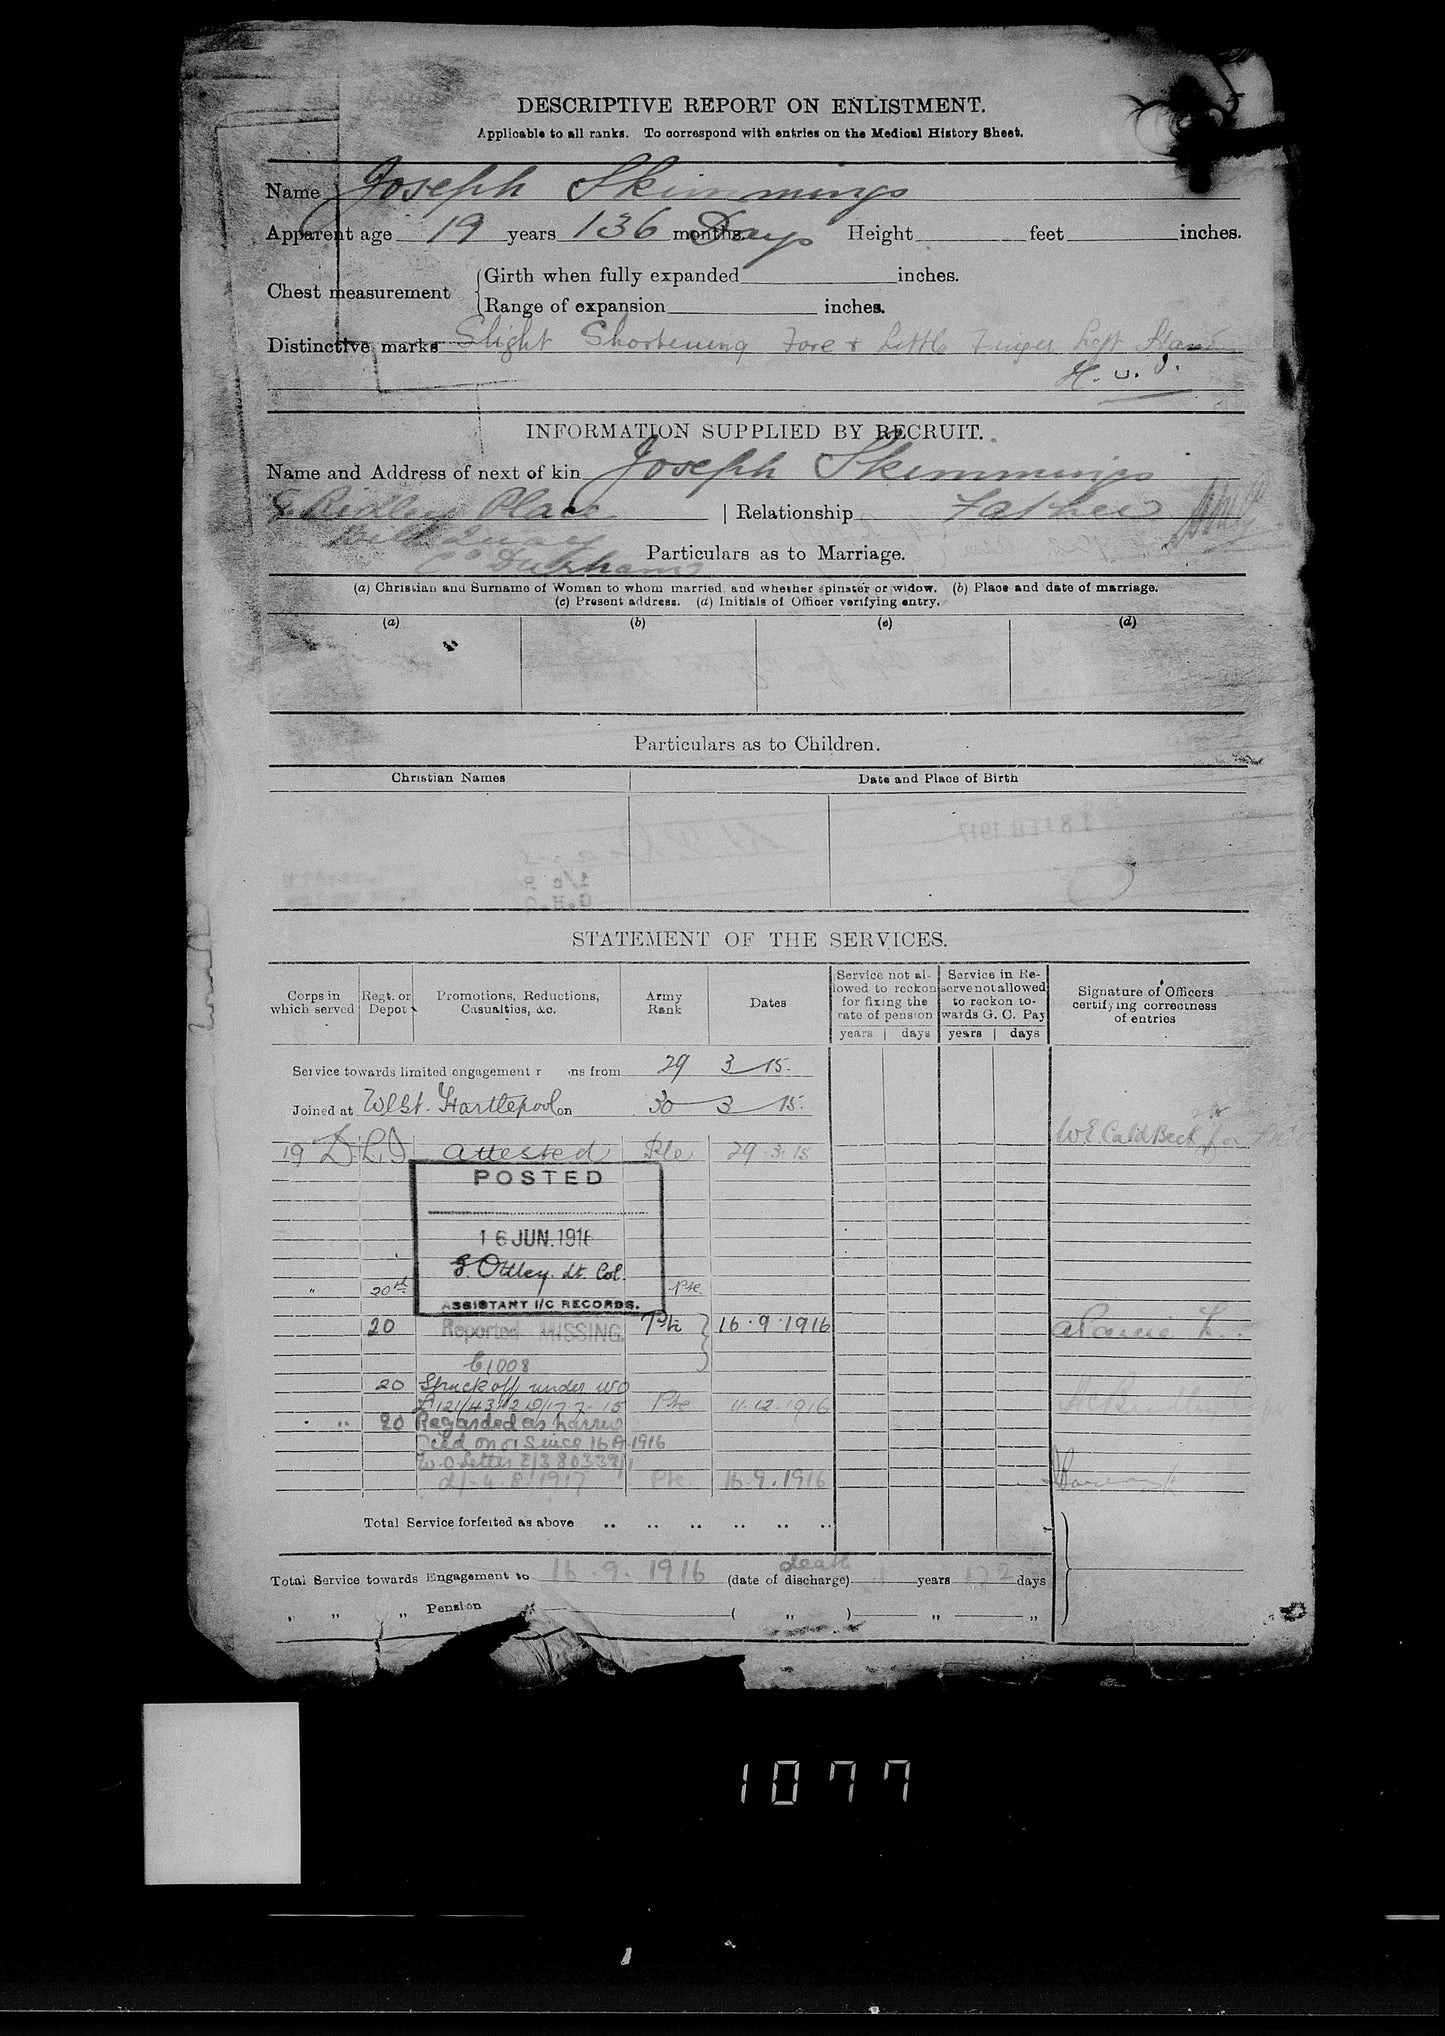 DESCRIPTIVE REPORT ON ENLISTMENT.
Applicable to all ranks. To correspond with entries on the Medical History Sheet.
Name Joseph Skimmings
Apparent age 19 years 136 months Days Height feet inches.
Chest measurement
Girth when fully expanded inches.
Range of expansion inches.
Distinctive marks Slight Shortening Fore + Little Finger Left Hand
INFORMATION SUPPLIED BY RECRUIT.
Name and Address of next of kin Joseph Skimmings
Ridley Place | Relationship Father
Bill Quay
Co Durham
Particulars as to Marriage.
(a) Christian and Surname of Woman to whom married, and whether spinster or widow. (b) Place and date of marriage.
(c) Present address. (d) Initials of Officer verifying entry.
(a) (b) (c) (d)
Particulars as to Children.
Christian Names Date and Place of Birth
STATEMENT OF THE SERVICES.
Corps in which served
Regt. or Depot
Promotions, Reductions, Casualties, &c.
Army Rank
Dates
Service not allowed to reckon for fixing the rate of pension
years days
Service in Reserve not allowed to reckon towards G. C. Pay
years days
Signature of Officers certifying correctness of entries
Service towards limited engagement r ns from 29 3 15.
Joined at West Hartlepool on 30 3 15.
WE CaldBeck for
19 DLI attested Pte 29.3.15
POSTED
16 JUN. 1916
G. Ottley. Lt. Col.
ASSISTANT I/C RECORDS.
" 20th Pte
20 Reported MISSING Pte 16.9.1916
C1008
20 Struck off under WO
Pte 11.12.1916
" 20 Regarded as having
Died on or since 16.9.1916
W.O Letter
d/- 4.8.1917 Pte 16.9.1916
Total Service forfeited as above
death
Total Service towards Engagement to 16.9.1916 (date of discharge) 1 years 172 days
" " " Pension ( " ) " "
1077